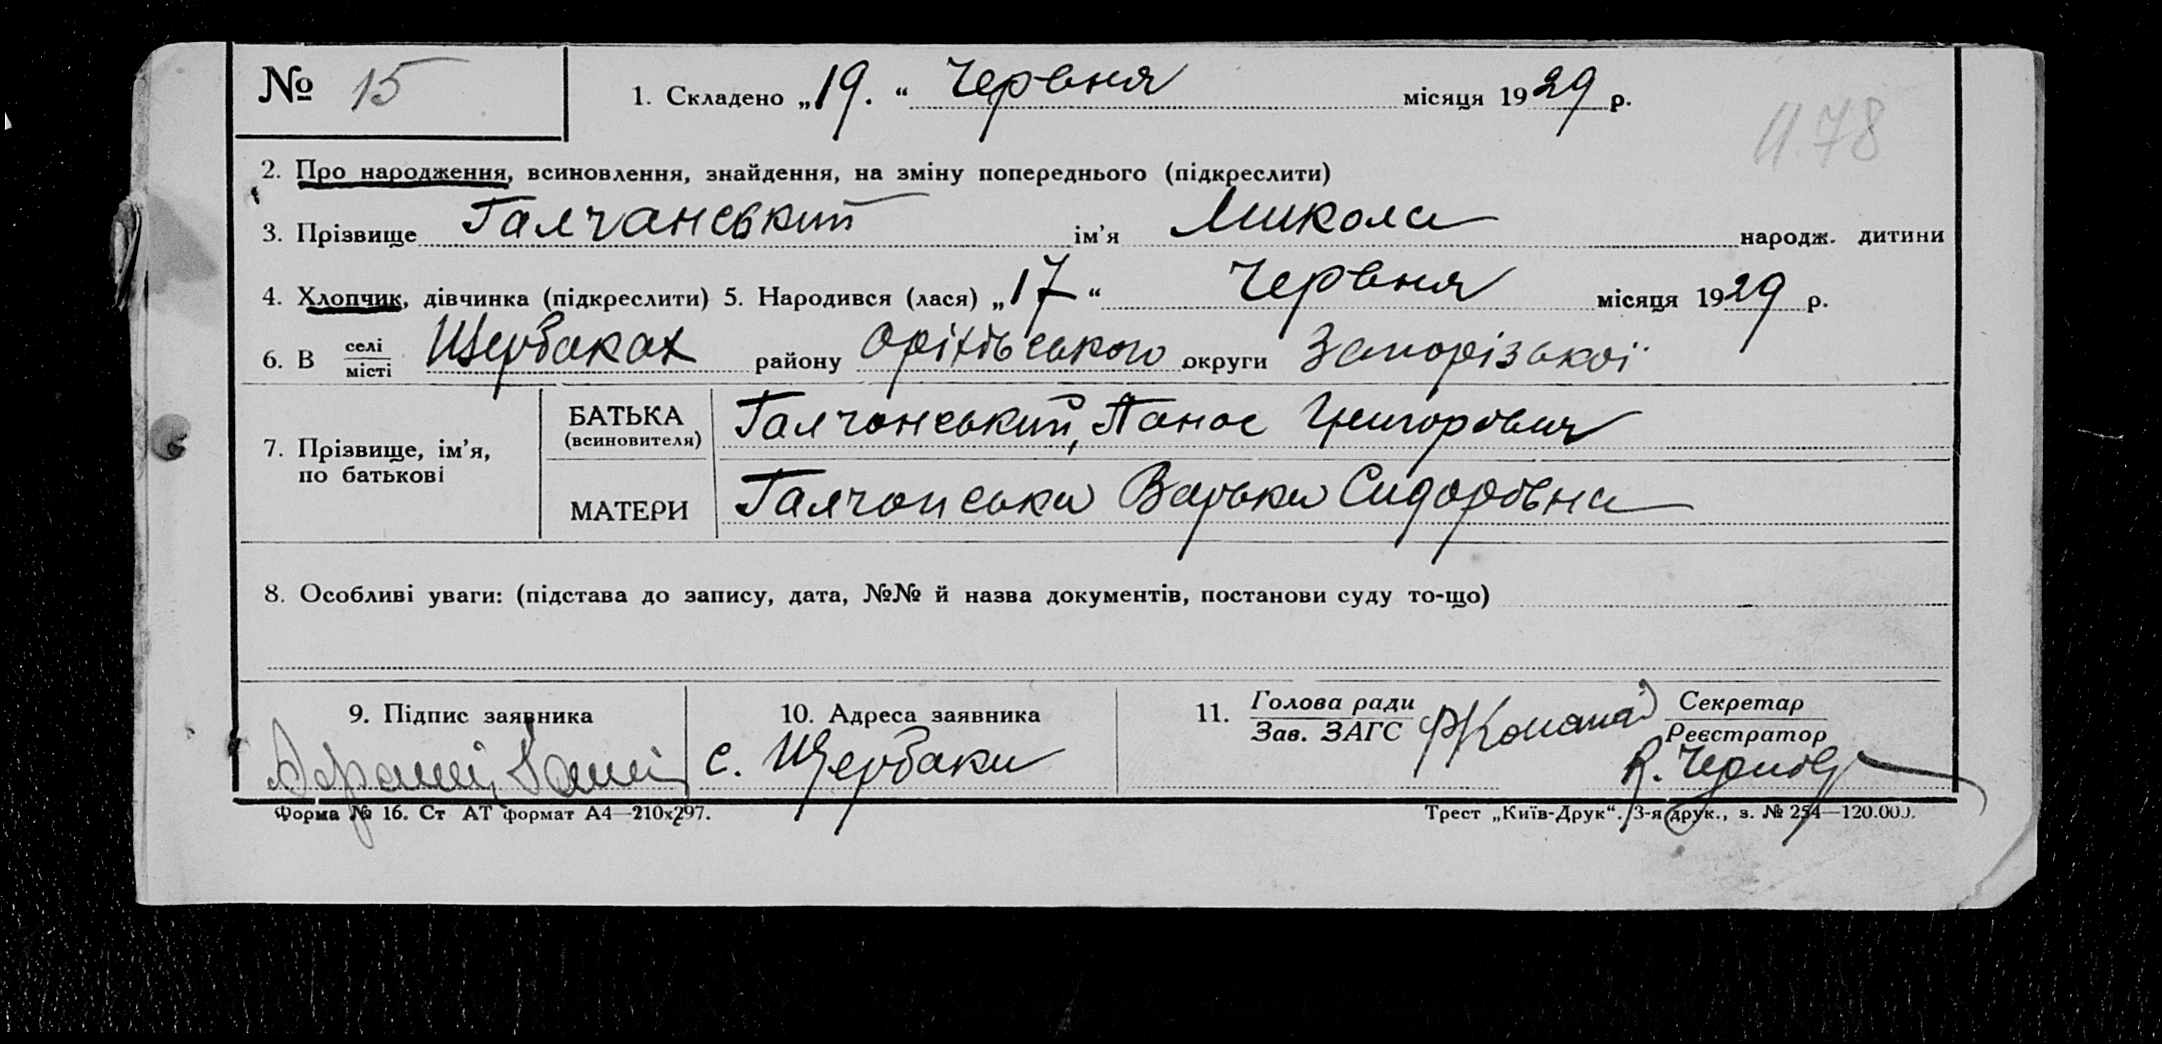 № 15
1. Складено „19.“ Червня місяця 1929 р.
11.78
2. Про народження, всиновлення, знайдення, на зміну попереднього (підкреслити)
3. Прізвище Галчанський ім’я Микола народж. дитини
4. Хлопчик, дівчинка (підкреслити) 5. Народився (лася) „17“ Червня місяця 1929 р.
6. В селі/місті Щербаках району Оріхівського округи Запорізької
7. Прізвище, ім’я, по батькові
БАТЬКА (всиновителя) Галчанський, Панас Григорович
МАТЕРИ Галчанська Варька Сидоровна
8. Особливі уваги: (підстава до запису, дата, №№ й назва документів, постанови суду то-що)
9. Підпис заявника
10. Адреса заявника
с. Щербаки
11. Голова ради
Зав. ЗАГС
Секретар
Реєстратор
Форма № 16. Ст АТ формат А4—210х297.
Трест „Київ-Друк“. 3-я друк., з. № 254—120.000.